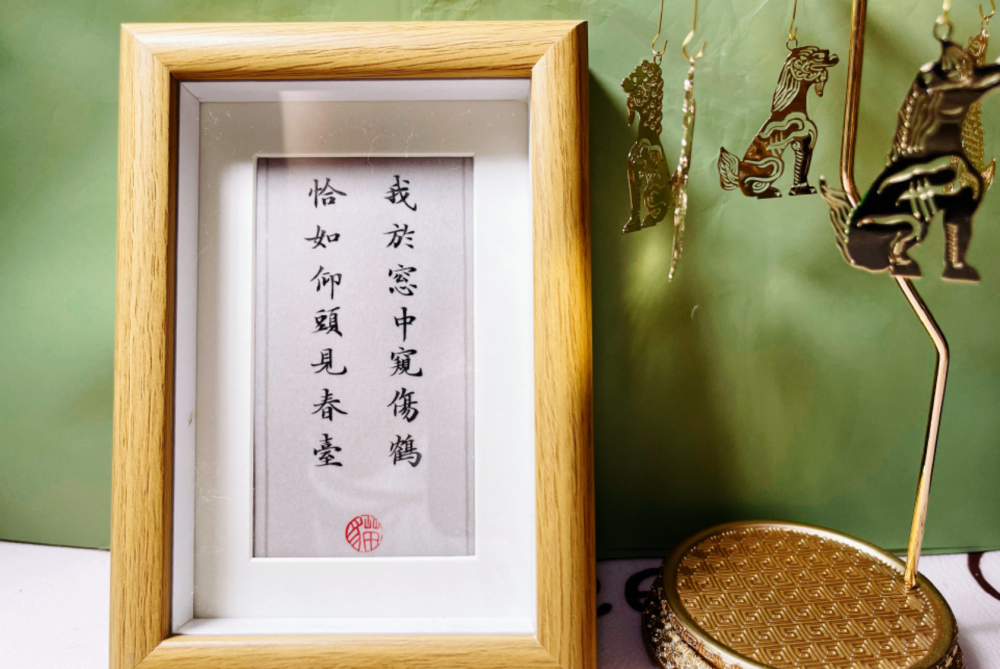 我於窓中窺傷鶴
恰如仰頭見春臺
貓